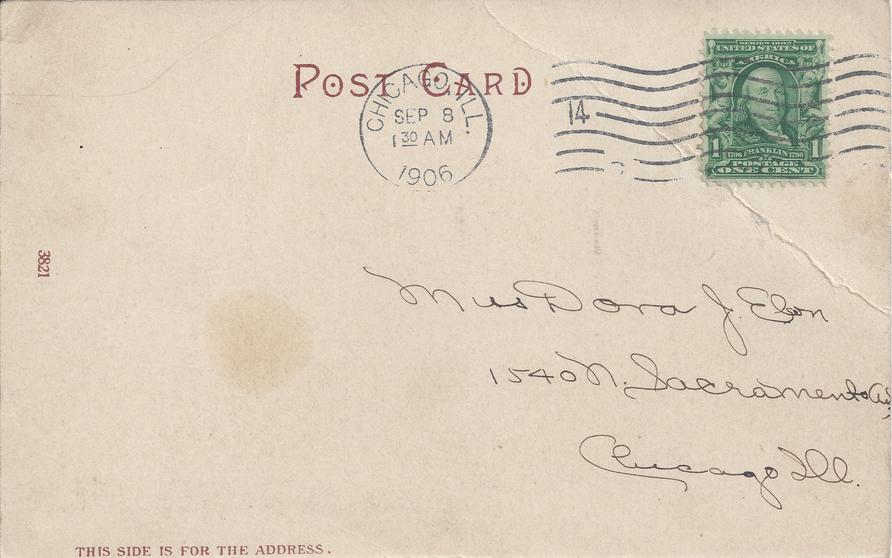 POST CARD
CHICAGO, ILL.
SEP 8
1 30 AM
1906
14
SERIES 1902
UNITED STATES OF
AMERICA
1706 FRANKLIN 1790
1 1
POSTAGE
ONE CENT
3821
Miss Dora J. Ebon
1540 N. Sacramento Av,
Chicago Ill.
THIS SIDE IS FOR THE ADDRESS.